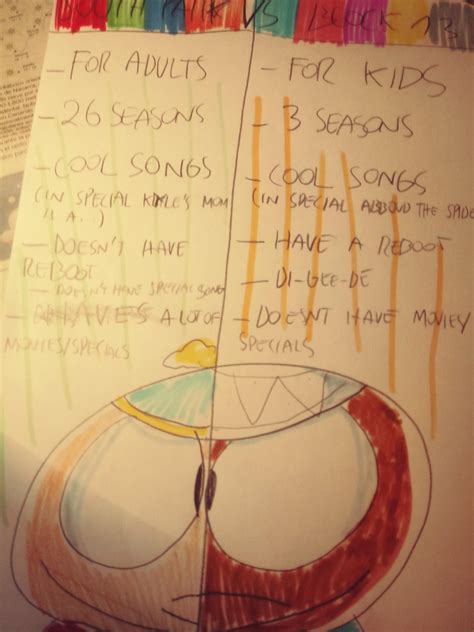 SOUTH PARK VS BLOCK 13
- FOR ADULTS
- 26 SEASONS
- COOL SONGS
(IN SPECIAL KYLE'S MOM
IS A...)
- DOESN'T HAVE
REBOOT
- DOESN'T HAVE SPECIAL SONG
- HAVE A LOT OF
MOVIES/SPECIALS
- FOR KIDS
- 3 SEASONS
- COOL SONGS
(IN SPECIAL THE
- HAVE A REBOOT
- DI-GEE-DE
- DOESNT HAVE MOVIES/
SPECIALS